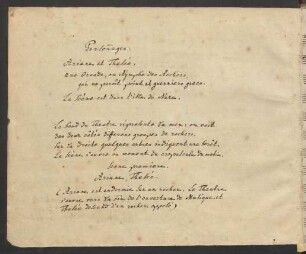 Personnages.
Ariane et Thésée,
une Oreade, ou Nymphe des Rochers
qui ne paroît point, et guerriers grecs.
La Scène est dans l'Isle de Naxe.
Le fond du Theatre représente la mer; on voit
des deux côtés differens groupes de rochers.
Sur la droite quelques arbres indiquent une forêt.
La Scene s'ouvre au moment du crepuscule du matin.
Scene premiere.
Ariane, Thésée.
(Ariane est endormie sur un rocher. Le Theatre
s'ouvre vers la fin de l'ouverture de Musique, et
Thésée descend d'un rocher opposé.)